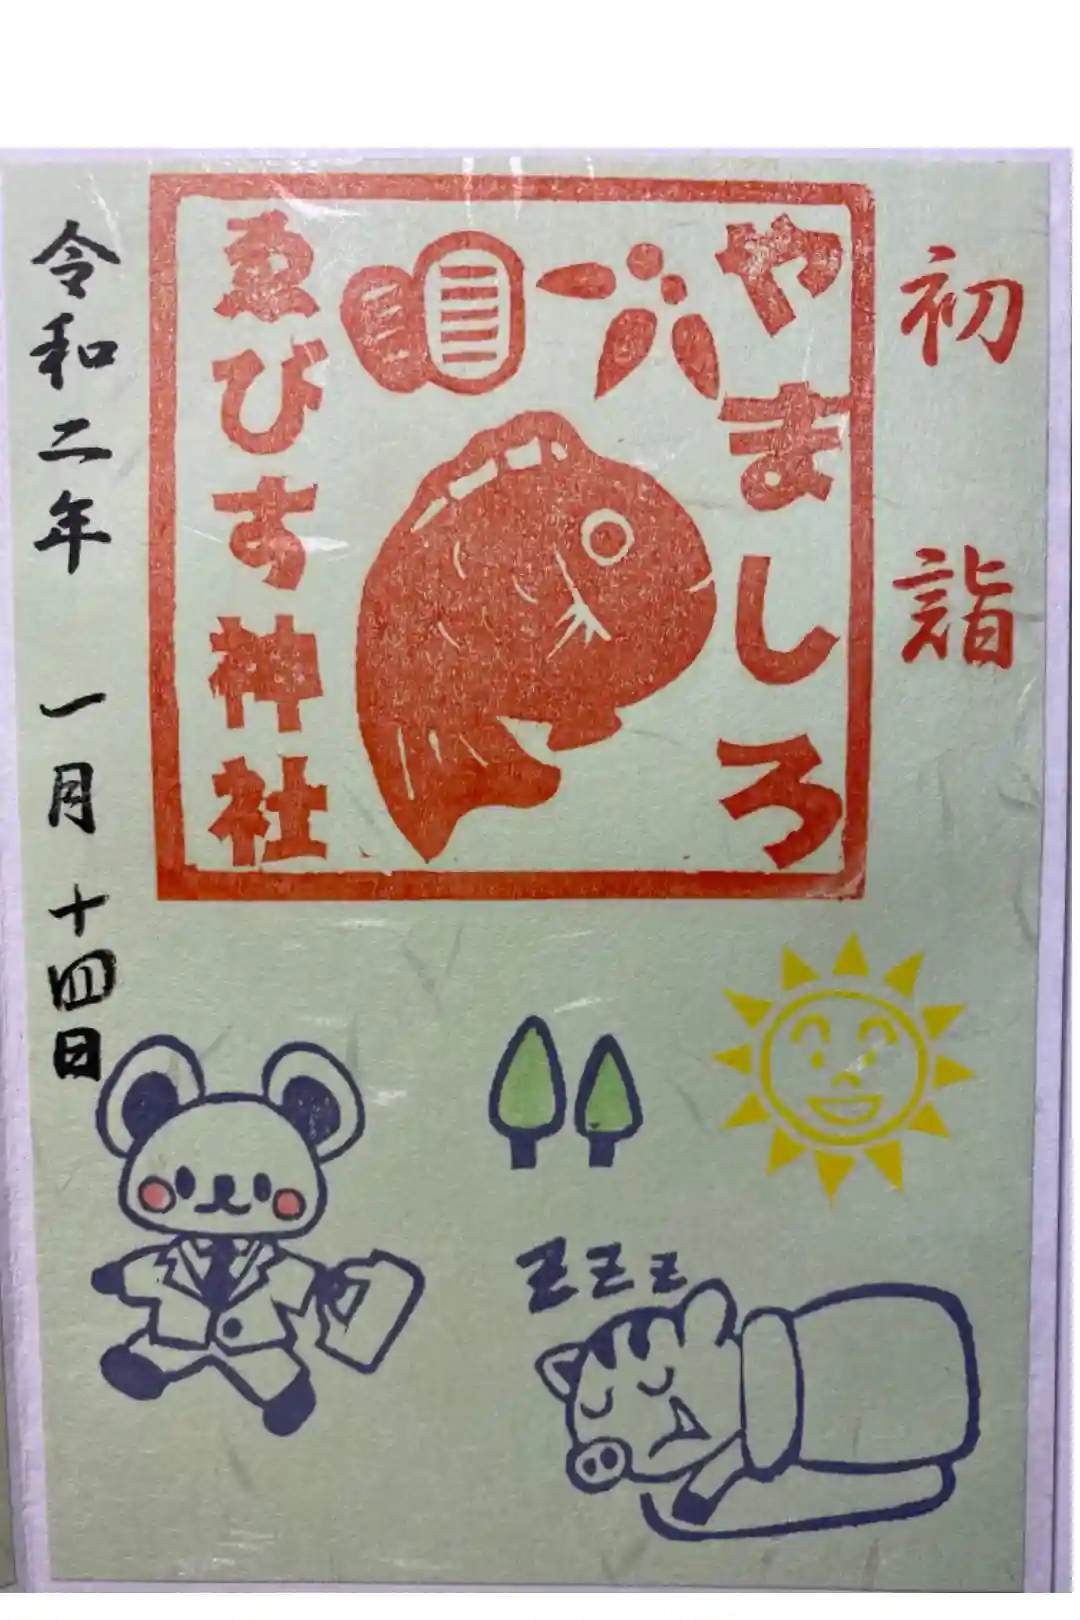 初詣
やましろ
ゑびす神社
令和二年 一月 十四日
z z z